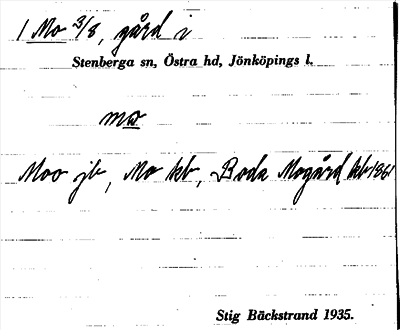 1 Mo 3/8, gård i
Stenberga sn, Östra hd, Jönköpings l.
mω
Moo jb, Mo kb, Boda Mogård kb 1861
Stig Bäckstrand 1935.